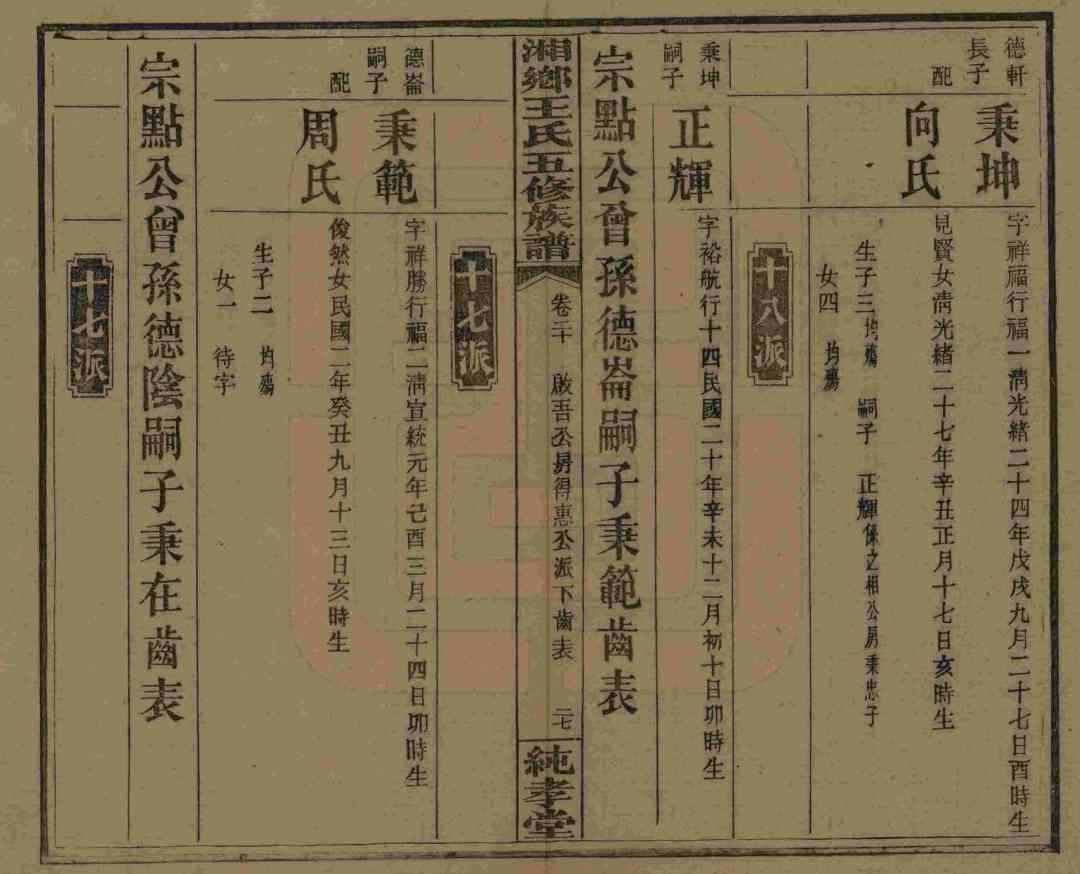 德軒
長子
秉坤
字祥福行福一清光緒二十四年戊戌九月二十七日酉時生
配
向氏
見賢女清光緒二十七年辛丑正月十七日亥時生
生子三 均殤 嗣子 正輝係之相公房秉忠子
女四 均殤
十八派
秉坤
嗣子
正輝
字裕航行十四民國二十年辛未十二月初十日卯時生
宗點公曾孫德崙嗣子秉範齒表
湘鄉王氏五修族譜
卷二十 啟吾公房得惠公派下齒表 二七
純孝堂
十七派
德崙
嗣子
秉範
字祥勝行福二清宣統元年己酉三月二十四日卯時生
配
周氏
俊然女民國二年癸丑九月十三日亥時生
生子二 均殤
女一 待字
宗點公曾孫德陰嗣子秉在齒表
十七派